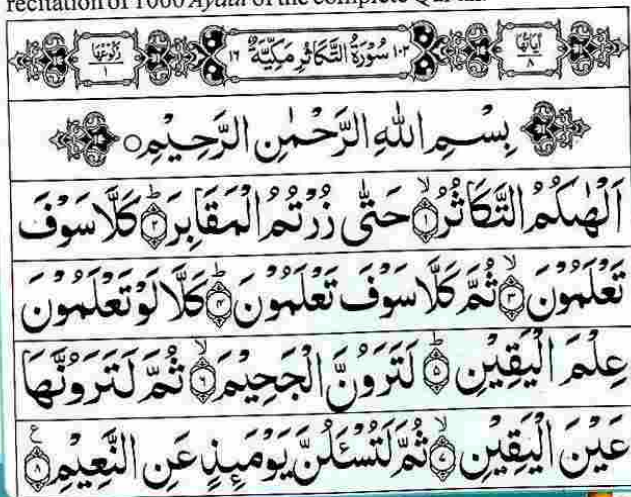 recitation of 1000 Ayaat of the complete Qur'an.
اٰيَاتُهَا ٨ ١٠٣ سُوْرَةُ التَّكَاثُرِ مَكِّيَّةٌ ١٦ رُكُوْعُهَا ١
بِسْمِ اللهِ الرَّحْمٰنِ الرَّحِيْمِ○
اَلْهٰىكُمُ التَّكَاثُرُ ۙ﴿١﴾ حَتّٰى زُرْتُمُ الْمَقَابِرَ ؕ﴿٢﴾ كَلَّا سَوْفَ
تَعْلَمُوْنَ ۙ﴿٣﴾ ثُمَّ كَلَّا سَوْفَ تَعْلَمُوْنَ ؕ﴿٤﴾ كَلَّا لَوْ تَعْلَمُوْنَ
عِلْمَ الْيَقِيْنِ ؕ﴿٥﴾ لَتَرَوُنَّ الْجَحِيْمَ ۙ﴿٦﴾ ثُمَّ لَتَرَوُنَّهَا
عَيْنَ الْيَقِيْنِ ۙ﴿٧﴾ ثُمَّ لَتُسْـَٔلُنَّ يَوْمَىِٕذٍ عَنِ النَّعِيْمِ ﴿٨﴾ ع